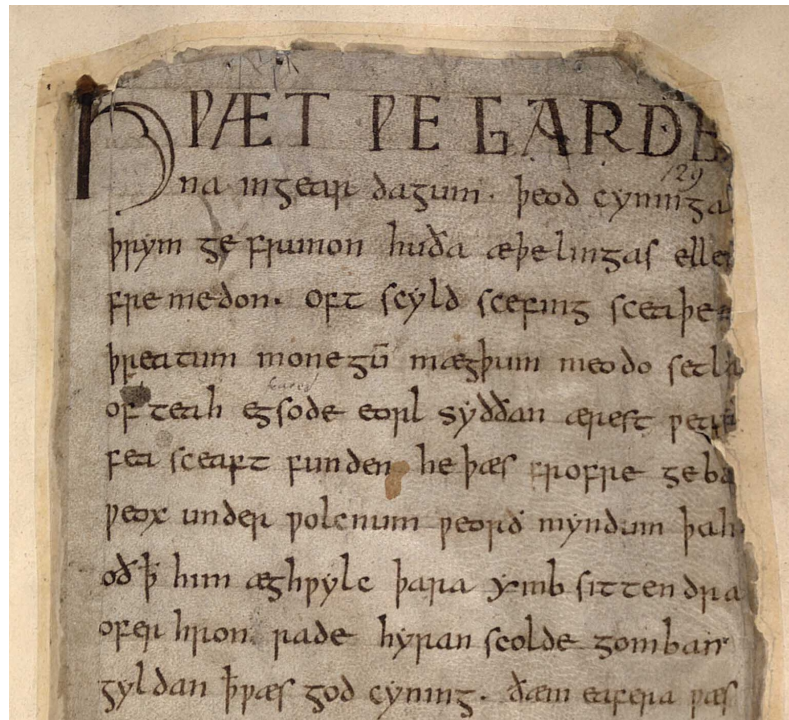 HǷÆT ǷE GARDE
na ingear dagum. þeod cyninga
þrym ge frunon huða æþelingas ellen
fremedon. oft scyld scefing sceaþena
þreatum monegū mægþum meodo setla
of teah egsode eorl syððan ærest ƿearð
fea sceaft funden he þæs frofre geba
ƿeox under ƿolcnum ƿeorð myndum þah
oð ꝥ him æghƿylc þara ymb sittendra
ofer hron rade hyran scolde gomban
gyldan ꝥ ƿæs god cyning. ðæm eafera ƿæs
129